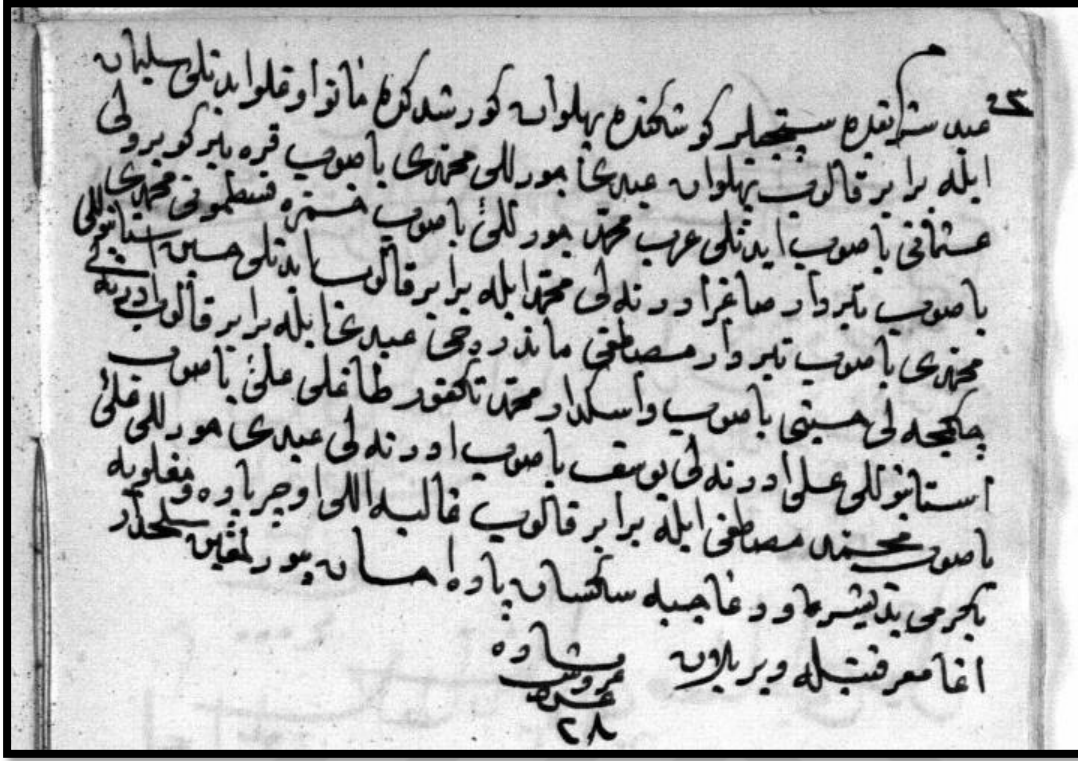 عید شرایفده سپتجیلر کوشکنده پهلوان کورشدکده خاتو اوقلو ایدنلی سلیمان
ایله برابر قالوب پهلوان عبدی چورللی محمدی باصوب قره بیر کوبرولی
عثمانی باصوب ایدنلی عرب محمد چورللی باصوب خسته قسطمونی محمدی
باصوب تبردار صاغر ادرنه لی محمد ایله برابر قالوب ایدنلی حسین استانبوللی
محمدی باصوب تبردار مصطفی عبدی ایله برابر قالوب ادرنه لی
چکمجه لی حسینی باصوب واسکدار محمد تکفور طاغلی علی باصوب
استانبوللی علی ادرنه لی یوسف باصوب ادرنه لی عبدی چورللی علی
باصوب محمد مصطفی ایله برابر قالوب غالبه اللی اوچر پاره ومغلوبه
یکرمی یدیشر و دعاجیه سکسان پاره احسان بیورلمغین سلحدار
اغا معرفتیله ویریلان پاره
غروش
عدد
٢٨
٢٣